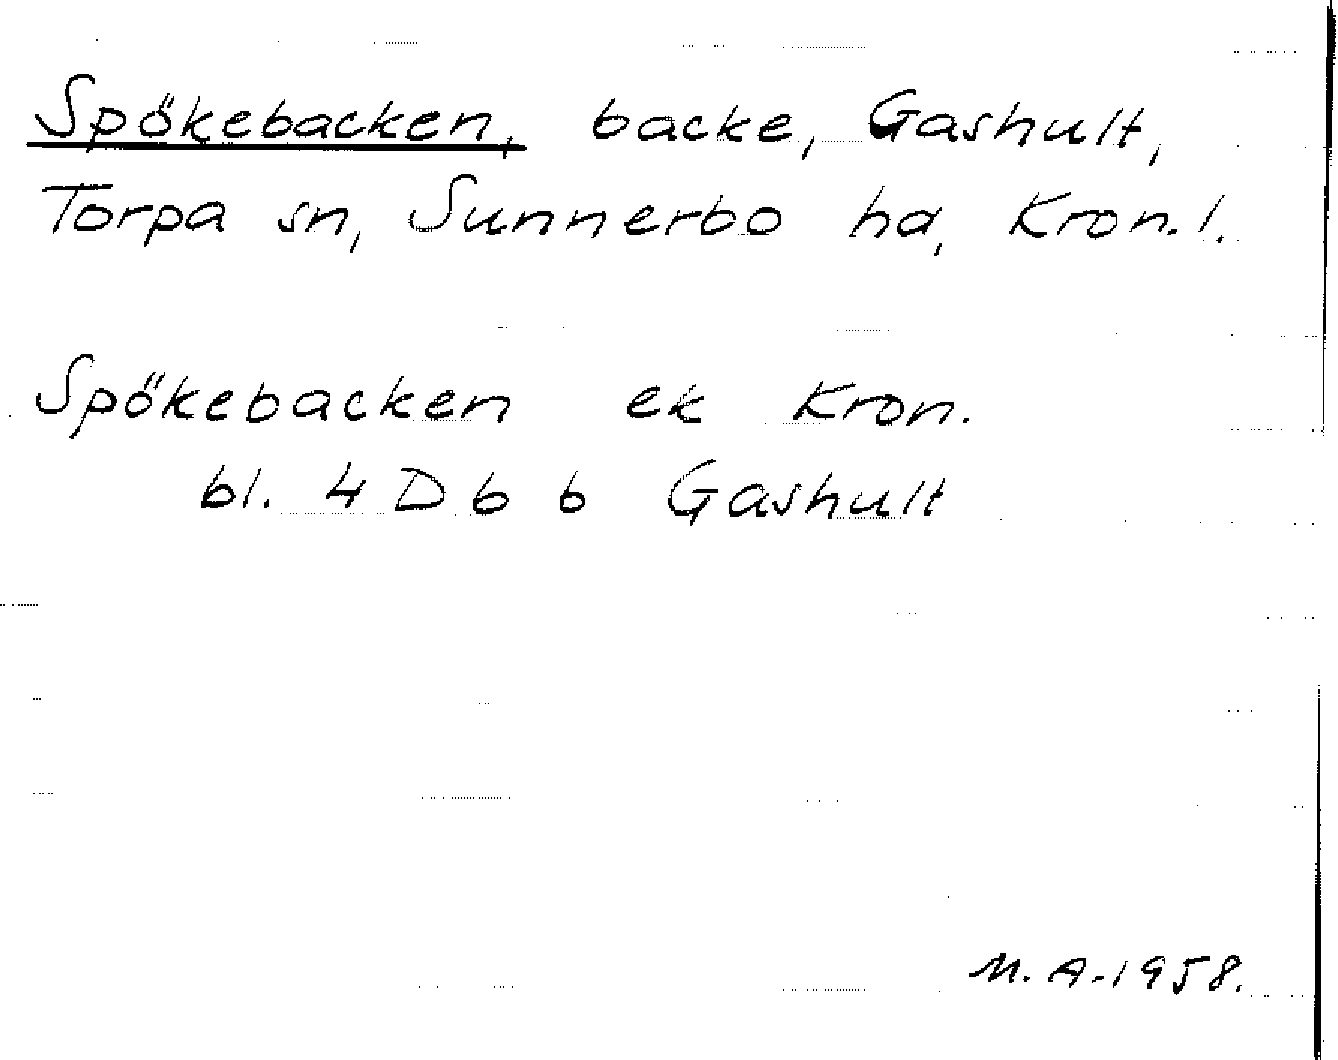 Spökebacken, backe, Gashult,
Torpa sn, Sunnerbo hd, Kron. l.
Spökebacken ek Kron.
bl. 4 D 6 b Gashult
M. A. 1958.